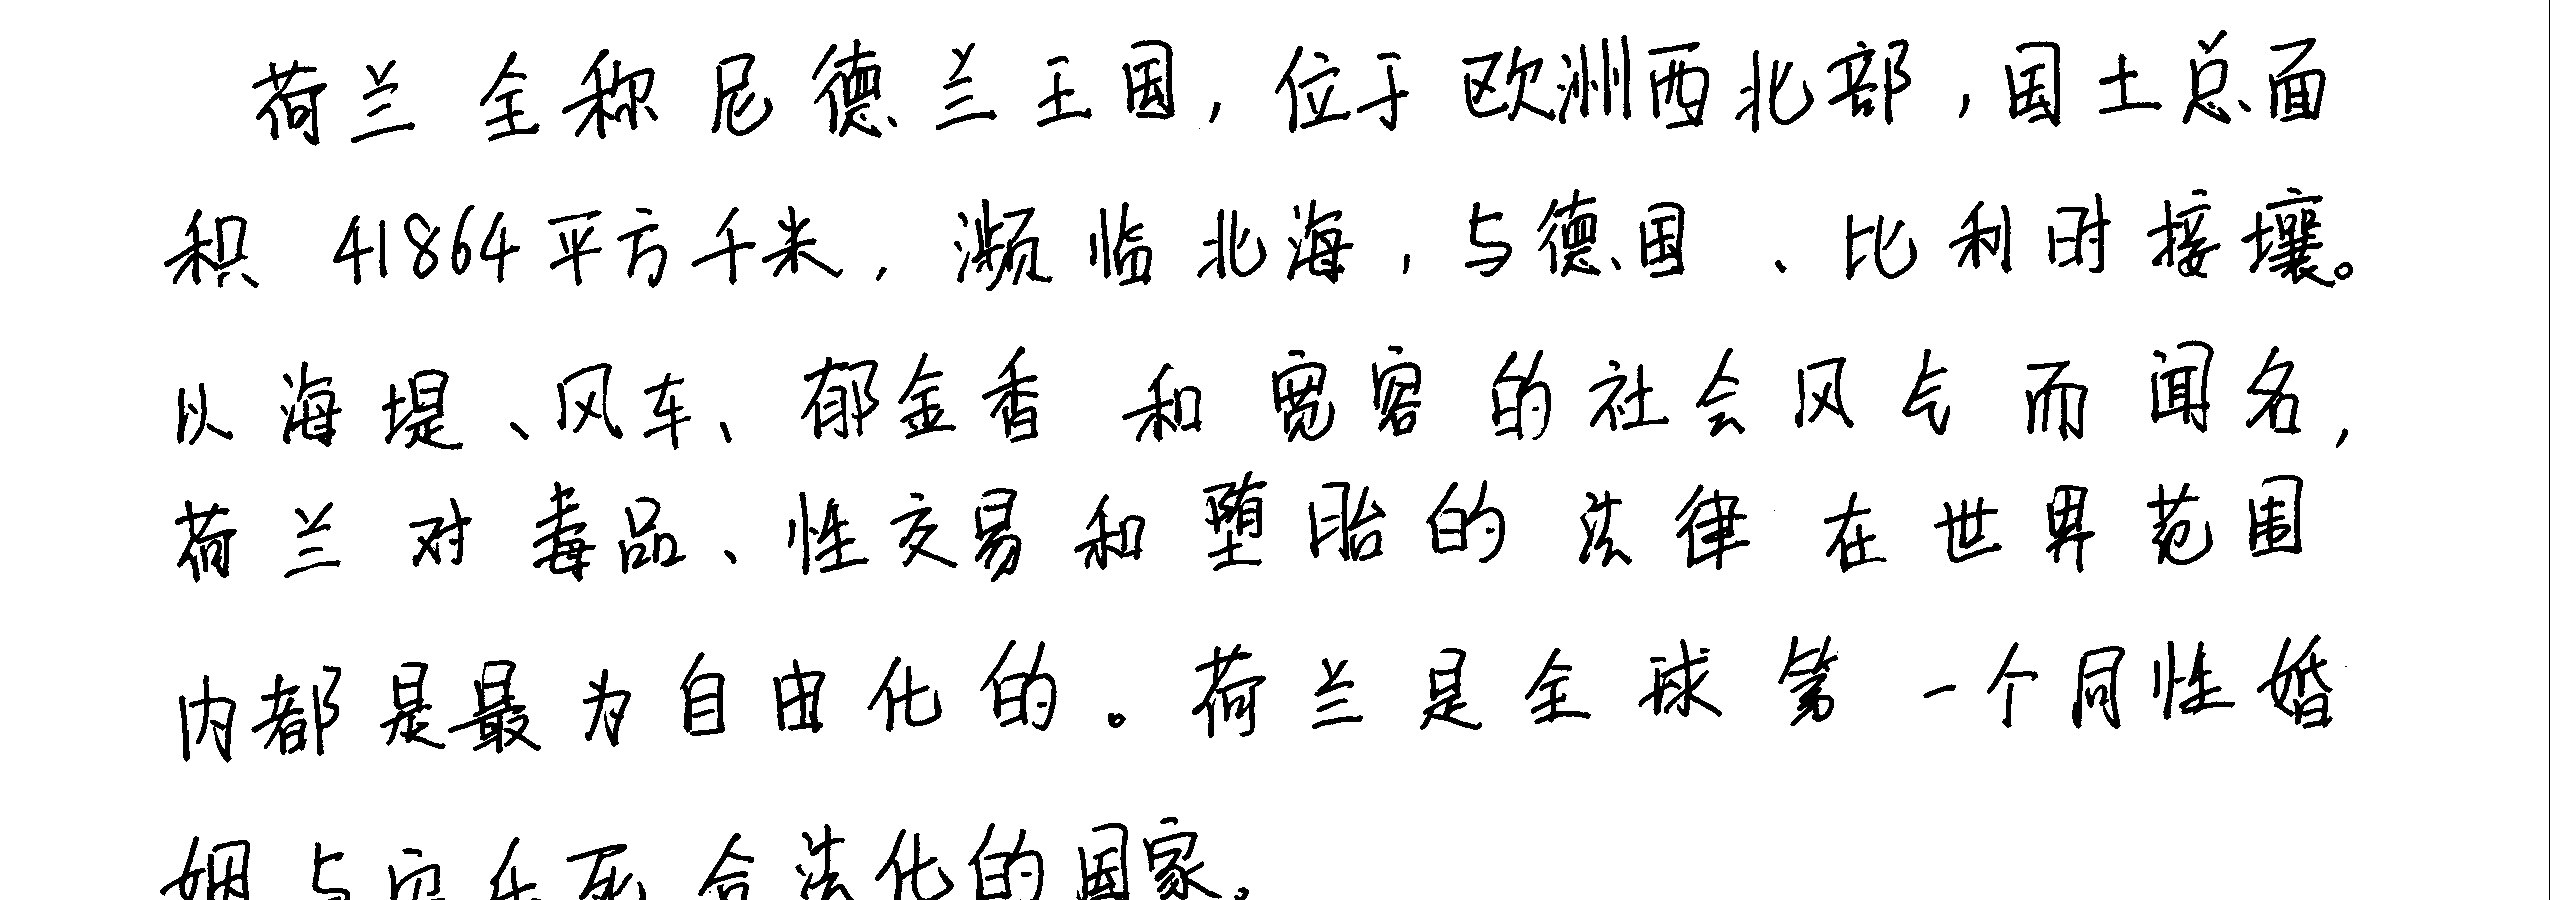 荷兰全称尼德兰王国,位于欧洲西北部,国土总面
积41864平方千米,濒临北海,与德国、比利时接壤。
以海堤、风车、郁金香和宽容的社会风气而闻名,
荷兰对毒品、性交易和堕胎的法律在世界范围
内都是最为自由化的。荷兰是全球第一个同性婚
姻与安乐死合法化的国家。